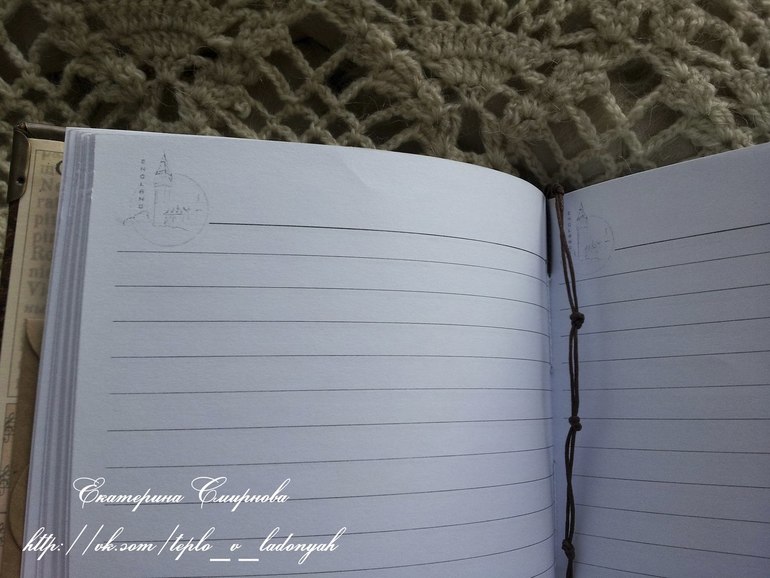 ENGLAND
ENGLAND
Екатерина Смирнова
http://vk.com/teplo_v_ladonyah